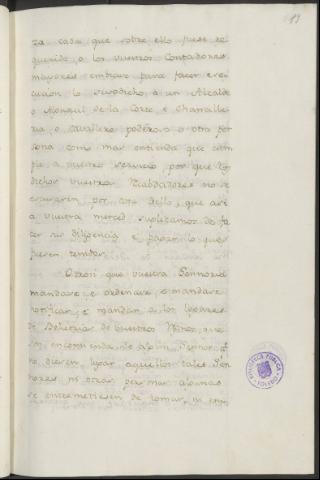 13
ra cada que sobre ello fuere re
querido, o los vuestros Contadores
mayores embiar para facer exe
cucion lo susodicho, a un Alcalde
o Alguacil de la Corte, e Chancille
ria, o cavallero poderoso, o otra per
sona como mas entienda que cum
ple a vuestro servicio, por que los
dichos vuestros Recabdadores no se
escusaren por esto dello, que asi
a vuestra merced suplicamos de fa
cer su diligencia e pagar lo que
fueren tenidos.
Otrosi que vuestra Sennoria
mandare, e ordenare, e mandare
notificar, e mandar a los lugares
de Behetrias de vuestros Reinos, que
son encomienda de algun Sennor
no dieren lugar aquellos tales Sen
nores, ni otras personas algunas
se entremetiesen de tomar, ni em
BIBLIOTECA PUBLICA
TOLEDO